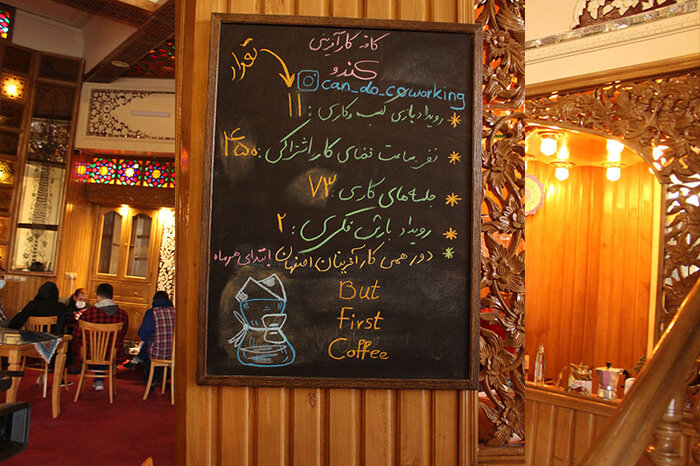 کافه کارآفرینی
کندو
تعداد
can_do_coworking
* رویداد بازی کسب و کاری : ۱۱
* نفر ساعت فضای کار اشتراکی : ۴۵۰
* جلسه‌های کاری : ۷۳
* رویداد بارش فکری : ۲
* دورهمی کارآفرینان اصفهان ابتدای هر ماه
But
First
Coffee